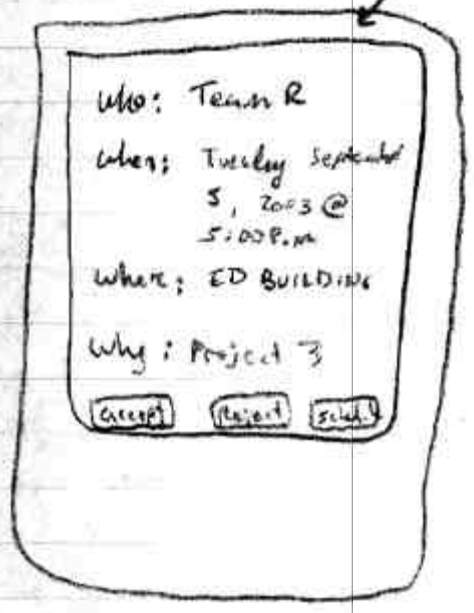 Who: Team R
When: Tuesday September
5, 2003 @
5:00 P.M
Where: ED BUILDING
Why: Project 3
accept Reject